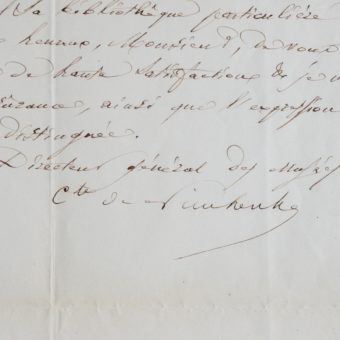 Sa bibliothèque particulière
honneur, Monsieur, de vous
de haute satisfaction & je v
ainsi que l'expression
distinguée.
Directeur général des Musées
Cte de Nieuwerkerke